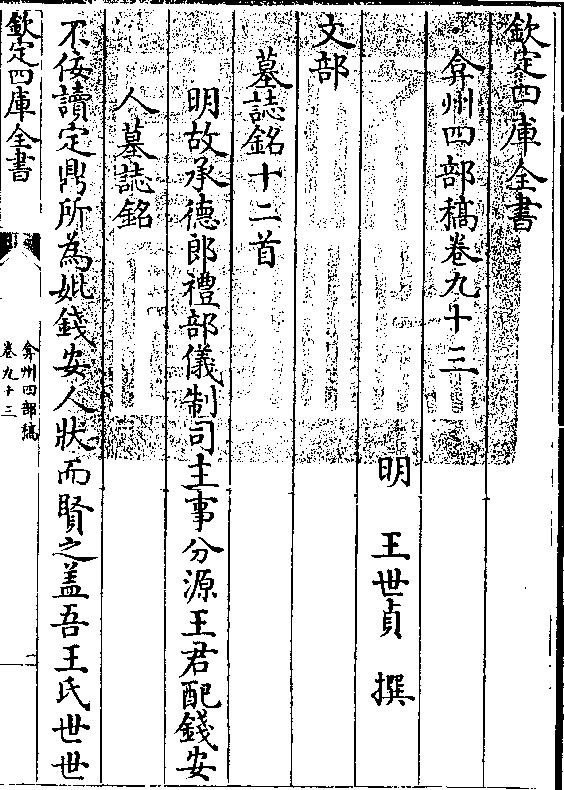 欽定四庫全書
弇州四部稿卷九十三
明 王世貞 撰
文部
墓誌銘十二首
明故承德郎禮部儀制司主事分源王君配錢安
人墓誌銘
不佞讀定鼎所為妣錢安人狀而賢之盖吾王氏世世
欽定四庫全書
弇州四部稿
卷九十三
一